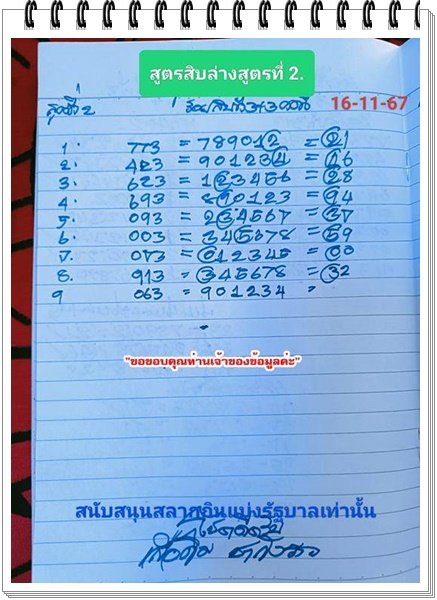 สูตรสิบล่างสูตรที่ 2.
16-11-67
1. 773 = 789012 = 21
2. 423 = 901234 = 46
3. 623 = 123456 = 28
4. 693 = 890123 = 94
5. 093 = 234567 = 37
6. 003 = 345678 = 59
7. 073 = 012345 = 00
8. 913 = 345678 = 32
9 063 = 901234 =
"ขอขอบคุณท่านเจ้าของข้อมูลค่ะ"
สนับสนุนสลากกินแบ่งรัฐบาลเท่านั้น